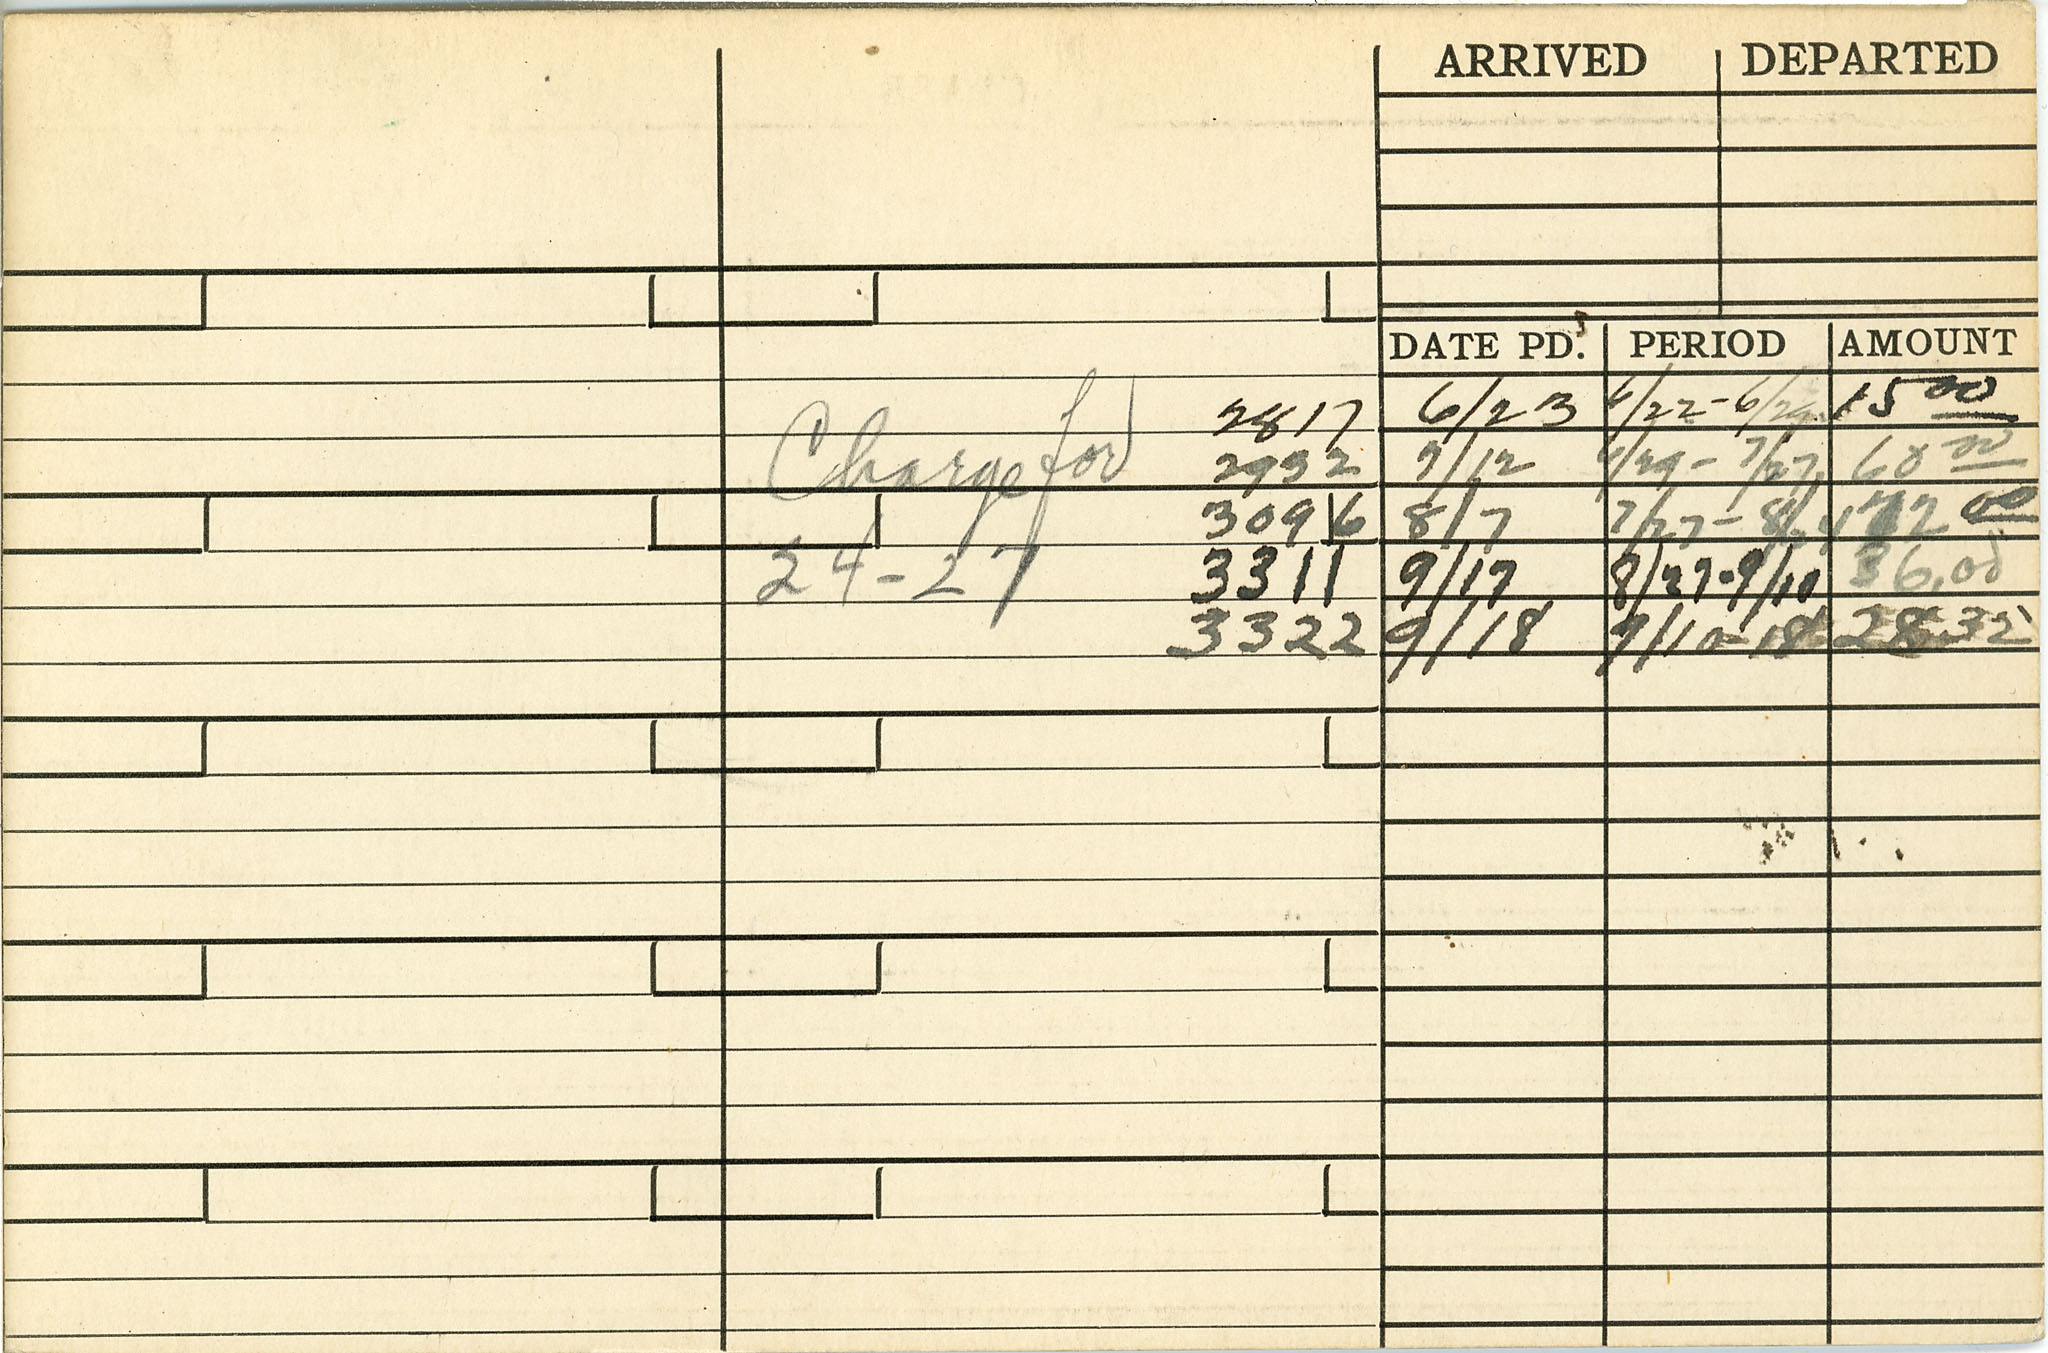 ARRIVED DEPARTED
DATE PD. PERIOD AMOUNT
2817 6/23 6/22-6/29 15 00
Charge for 2952 7/12 6/29-7/27 60 00
3096 8/7 7/27-8/24 72 00
24-27 3311 9/17 8/27-9/10 36.00
3322 9/18 9/10-18 28.32